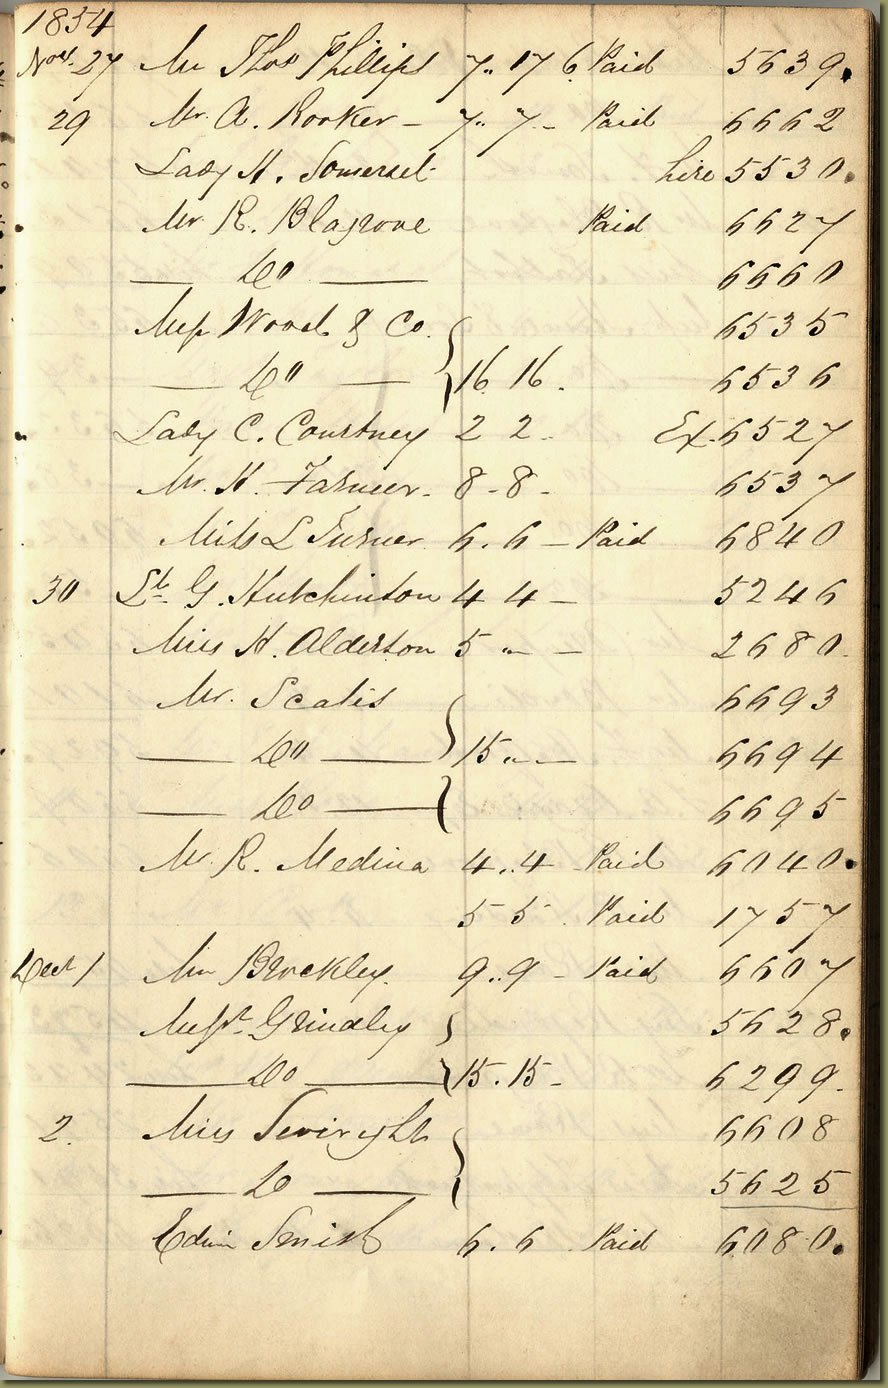 1854
Novr. 27 Mr Thos Phillips 7" 17 6 Paid 5639.
29 Mr. A. Rooker - 7" 7 - Paid 6662
Lady H. Somerset hire 5530.
Mr R. Blagrove Paid 6627
— Do — 6660
Messrs Wood & Co. 6535
— Do — 16 16 . 6536
Lady C. Courtney 2 2 . Ex. 6527
Mr. H. Farmer - 8 - 8 - 6537
Miss L Turner 6 . 6 - Paid 6840
30 Lt. G. Hutchinson 4 4 - 5246
Miss H. Alderson 5 " - - 2680
Mr. Scates 6693
— Do — 15 " - - 6694
— Do — 6695
Mr R. Medina 4 .. 4 - Paid 6040.
5 5 . Paid 1757
Decr 1 Mr Brockley. 9 .. 9 - Paid 6607
Messrs. Grindley 5628.
— Do — 15 . 15 - 6299.
2. Miss 6608
— Do — 5625
Edwin Smith 6 . 6 Paid 6080.